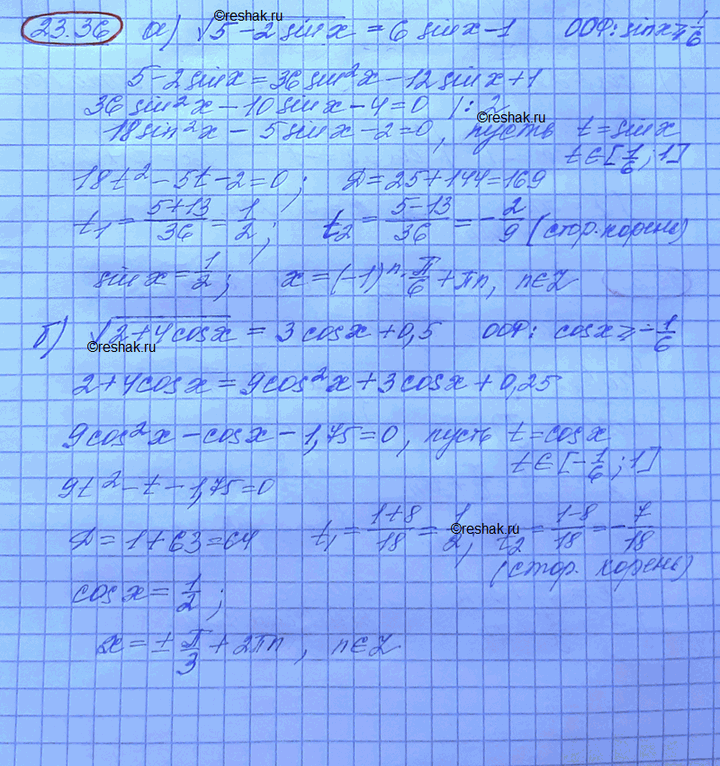 ©reshak.ru
23.36 а) √5-2sinx = 6 sinx-1 ООФ: sinx≥1/6
5-2sinx=36sin²x-12sinx+1
36sin²x-10sinx-4=0 |:2
©reshak.ru
18sin²x-5sinx-2=0, пусть t=sinx
t∈[1/6;1]
18t²-5t-2=0; D=25+144=169
t₁=(5+13)/36=1/2; t₂=(5-13)/36=-2/9 (стор.корень)
sinx=1/2; x=(-1)ⁿ·π/6+πn, n∈Z
б) √2+4cosx = 3cosx+0,5 ООФ: cosx≥-1/6
©reshak.ru
2+4cosx=9cos²x+3cosx+0,25
9cos²x-cosx-1,75=0, пусть t=cosx
t∈[-1/6;1]
9t²-t-1,75=0
D=1+63=64 t₁=(1+8)/18=1/2, t₂=(1-8)/18=-7/18
©reshak.ru
(стор. корень)
cosx=1/2;
x=±π/3+2πn, n∈Z